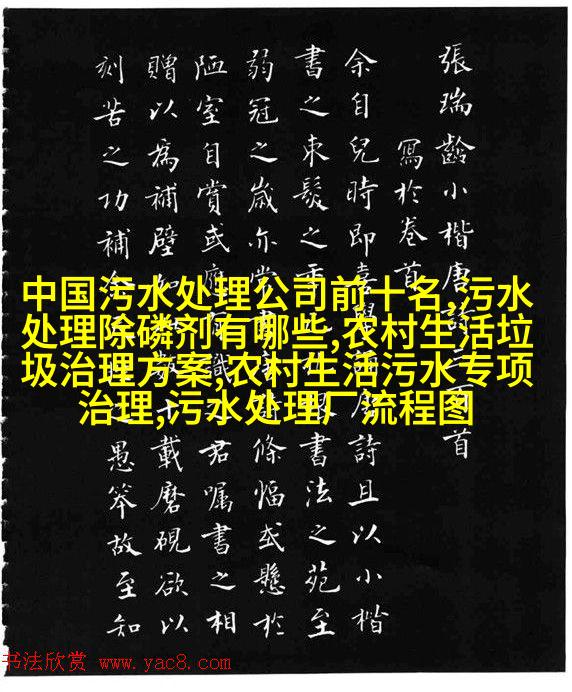 張瑞齡小楷唐詩三百首
寫於卷首
余自兒時即喜學詩且以小楷
書之束髮之書法之苑至
弱冠之歲亦嘗條幅或懸於
陋室自賞或應君囑書之相
贈以為補壁如數十載磨硯欲以
刻苦之功補之愚笨故至知
中国污水处理公司前十名,污水
处理除磷剂有哪些,农村生活垃
圾治理方案,农村生活污水专项
治理,污水处理厂流程图
书法欣赏 www.yac8.com